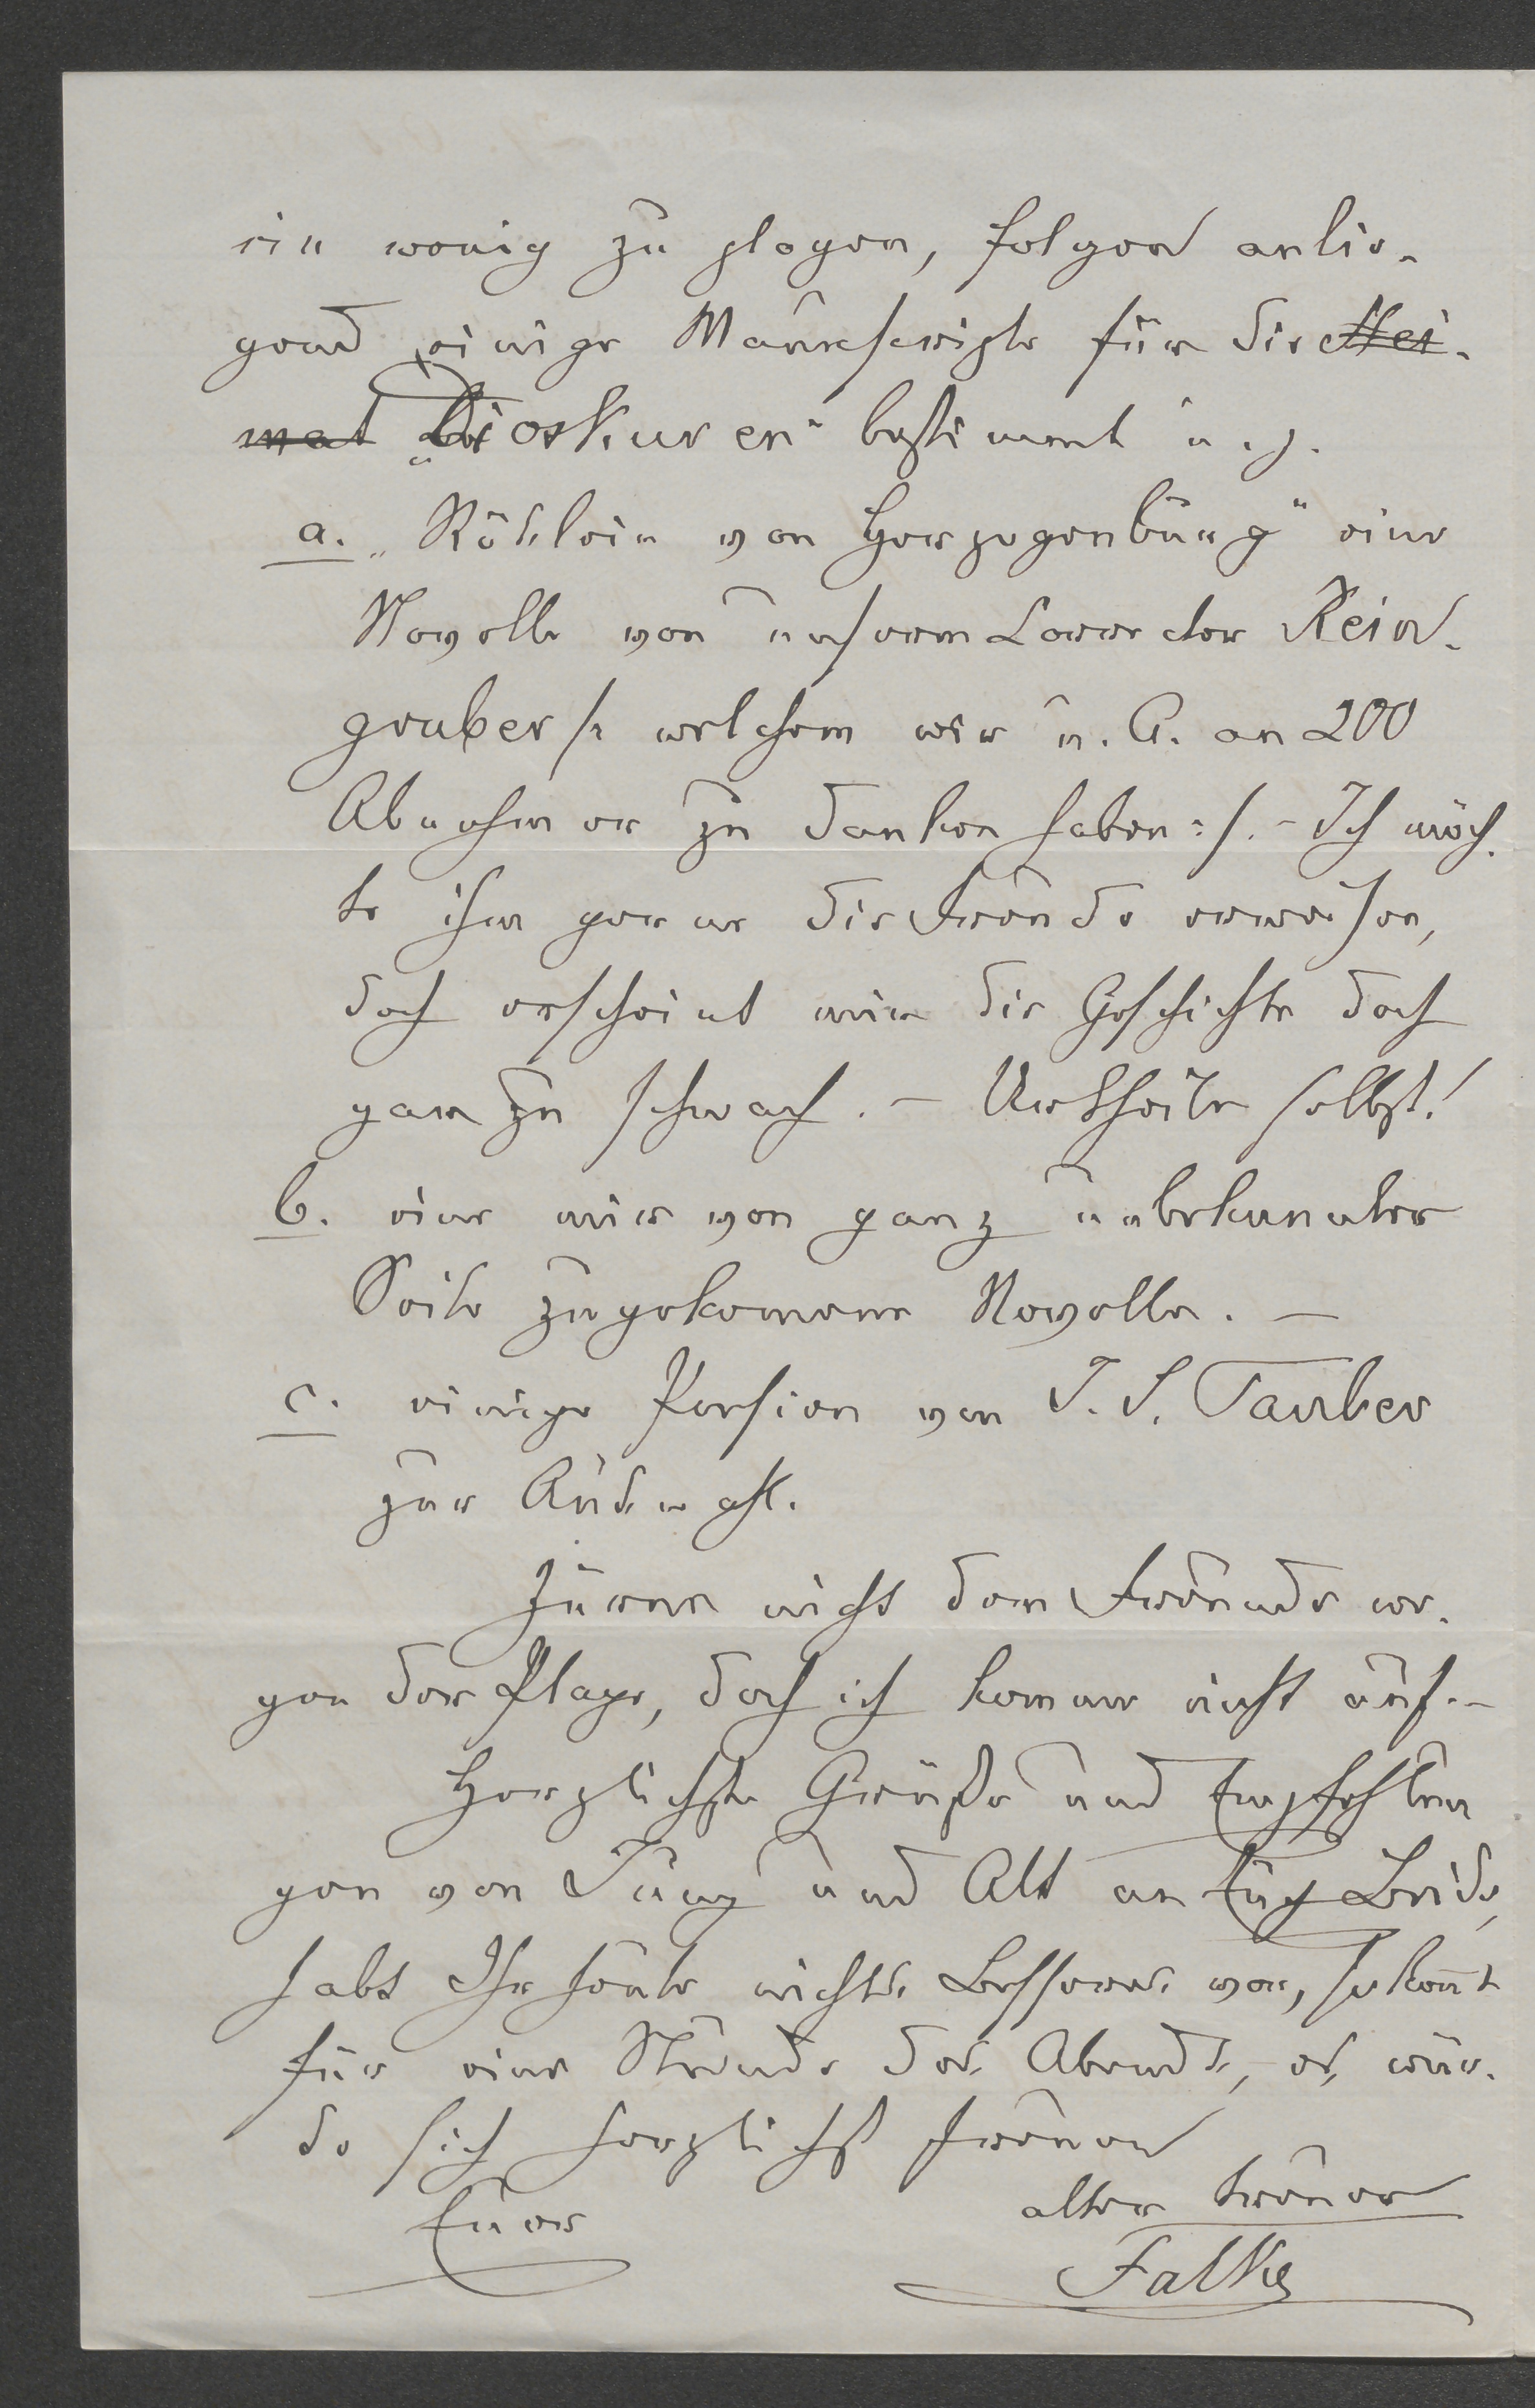 ein wenig zu plagen, folgen anlie-
gend einige Manuscripte für die Hei-
mat „Dioskuren“ bestimmt u. z.
a. „Röslein von Herzogenburg“ eine
Novelle von unserem Corrector Rein-
gruber /: welchem wir u. A. an 200
Abnehmer zu danken haben :/. – Ich möch-
te ihm gerne die Freude erweisen,
doch erscheint mir die Geschichte doch
gar zu schwach. – Urtheile selbst!
b. eine mir von ganz unbekannter
Seite zugekommene Novelle. –
c. einige Poesien von J. S. Tauber
zur Auswahl.
Zürne nicht dem Freunde we-
gen der Plage, doch ich komme nicht auf. –
Herzlichste Grüße und Empfehlun
gen von Jung und Alt an Euch Beide,
habt Ihr heute nichts Besseres vor, so komt
für eine Stunde des Abends, es wür-
de sich herzlichst freuen
Euer
alter treuer
Falke